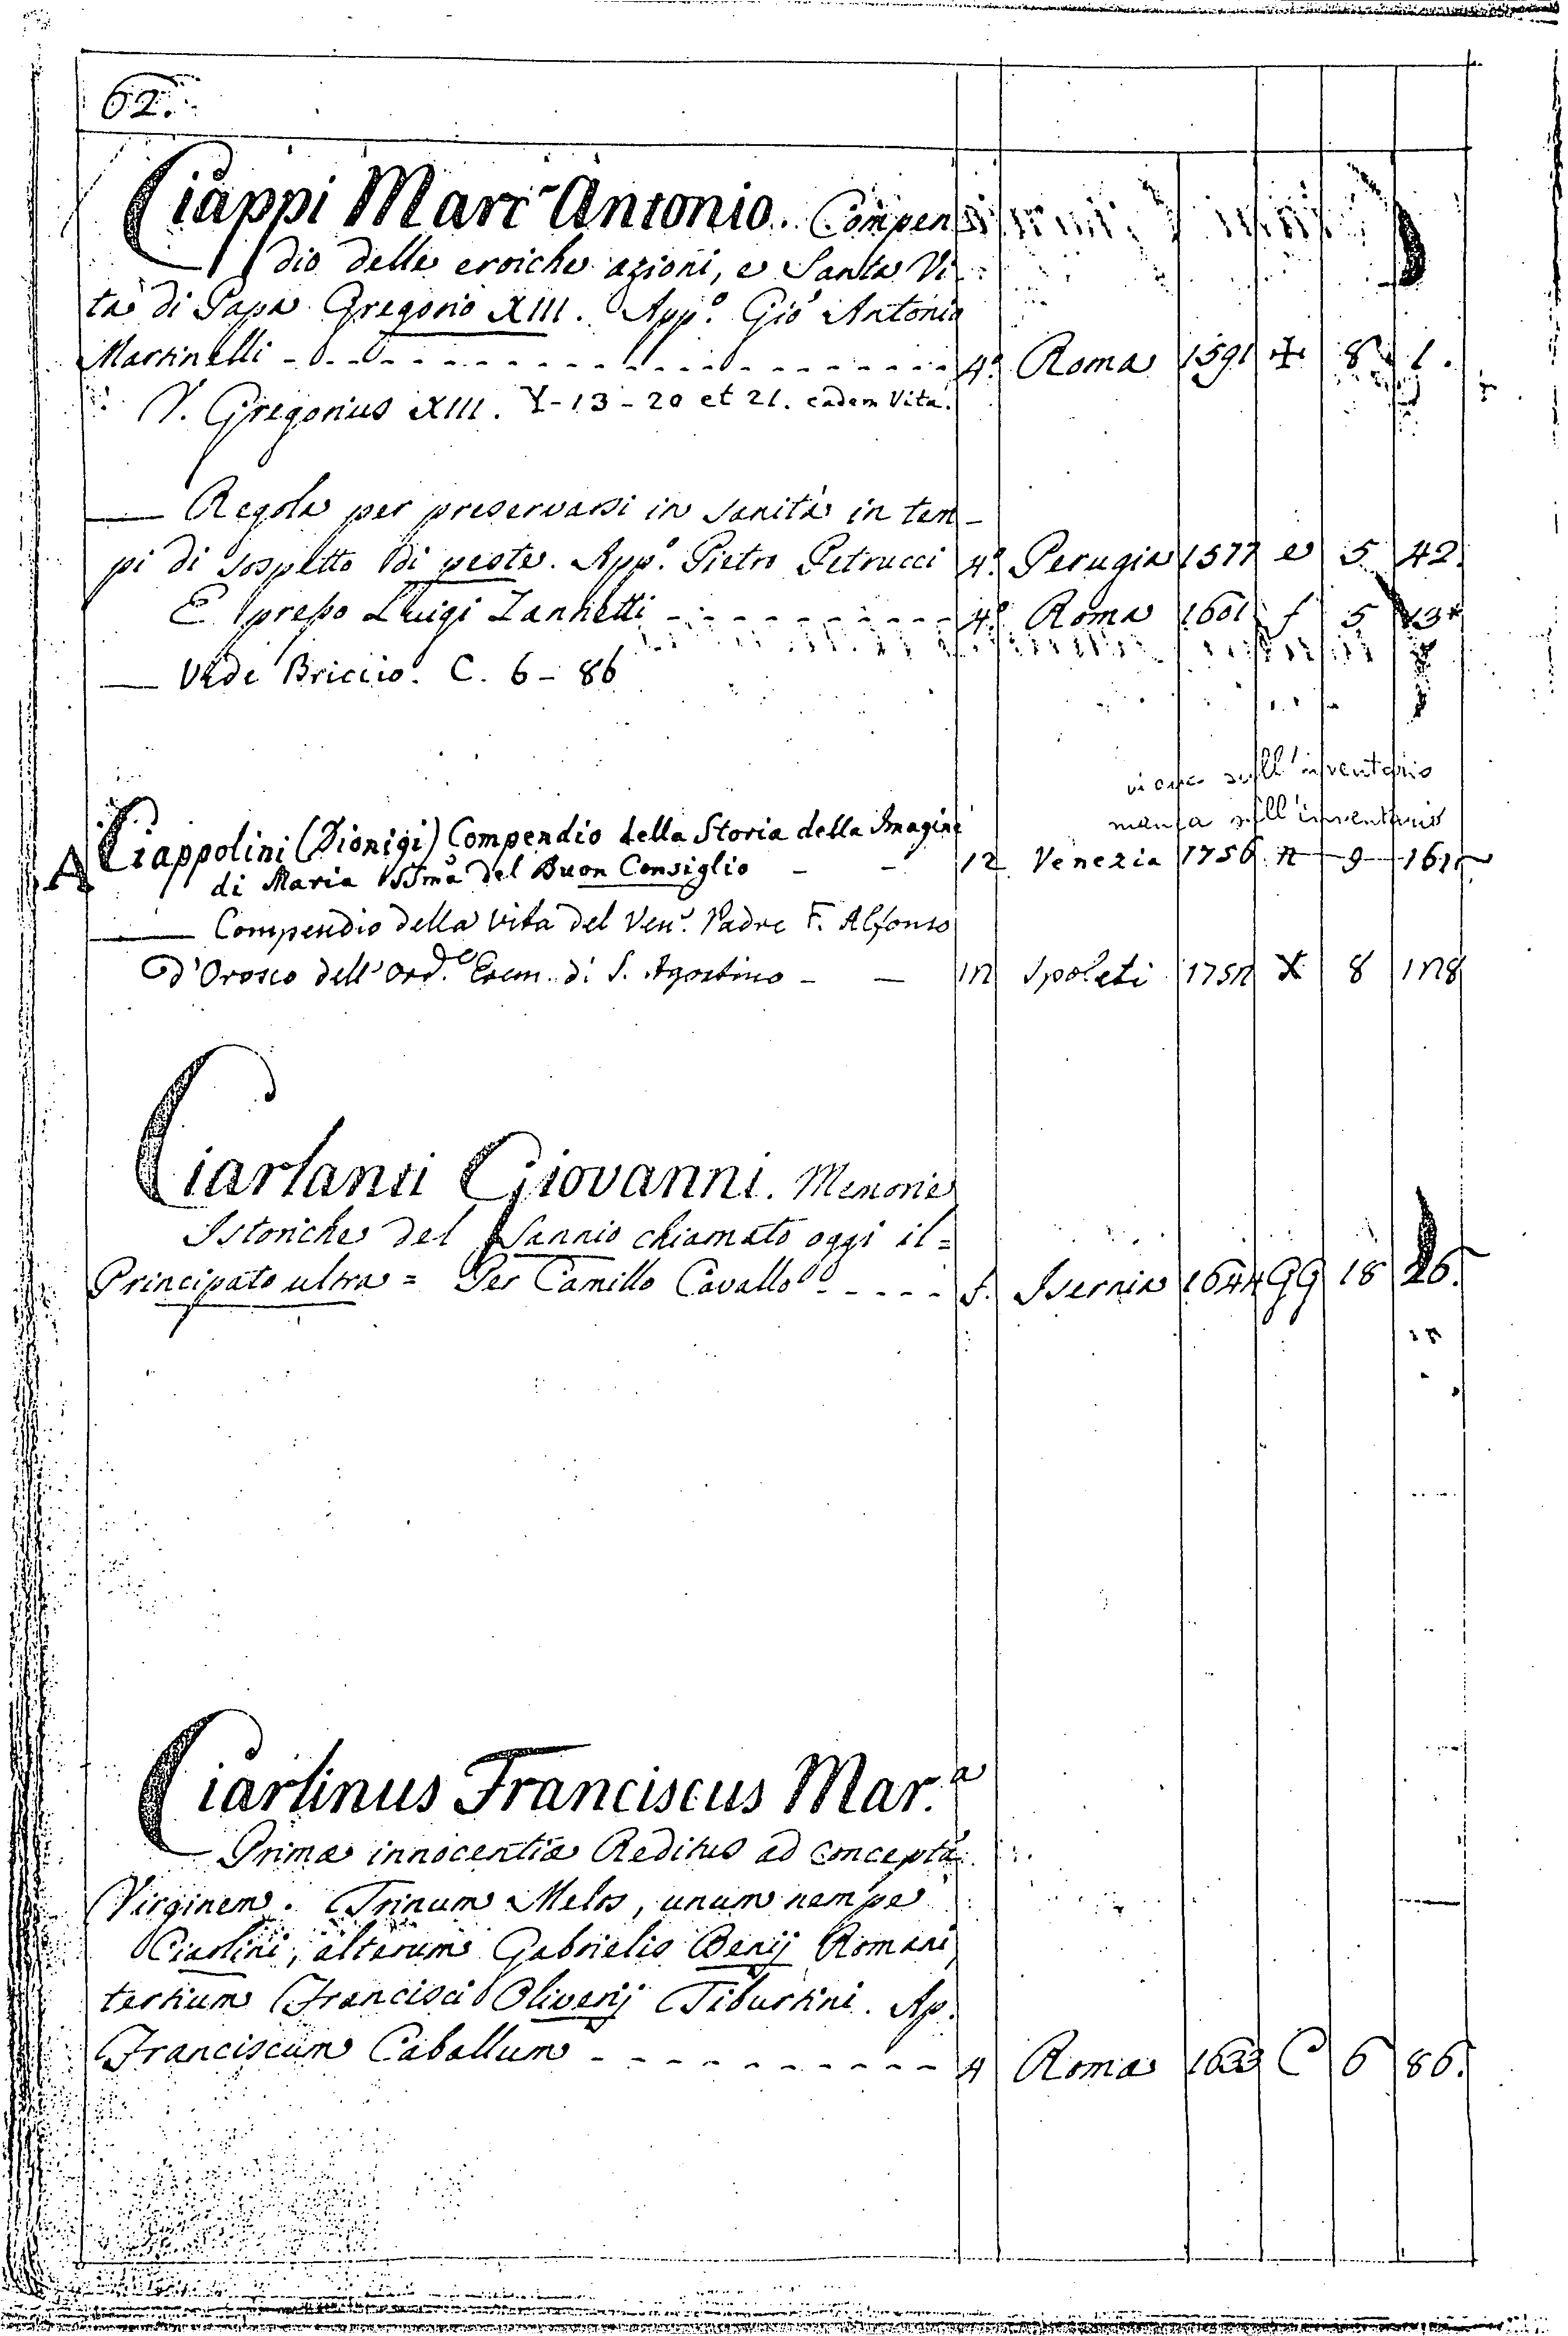 62.
Ciappi Marc Antonio. Compen
dio delle eroiche azioni, e Santa Vi
ta di Papa Gregorio XIII. App.º Giò Antonio
Martinelli - - - - 4º Roma 1591 ✠ 8 1.
V. Gregorius XIII. Y-13-20 et 21. eadem Vita.
— Regola per preservarsi in sanità in tem-
pi di sospetto di peste. App.º Pietro Petrucci 4º Perugia 1577 e 5 42.
E presso Luigi Zannetti - - - - 4º Roma 1601 f 5 13*
— Vide Briccio. C. 6-86
sull'inventario
manca sull'inventario
A Ciappolini (Dionigi) Compendio della Storia della Imagine
di Maria SSma del Buon Consiglio - - 12 Venezia 1756 n 9 161
— Compendio della vita del Ven. Padre F. Alfonso
d'Orosco dell'Ord.e Erem. di S. Agostino - — 12 Spoleti 1752 X 8 128
Ciarlanti Giovanni. Memorie
Istoriche del Sannio chiamato oggi il =
Principato ultra = Per Camillo Cavallo - - - - f. Isernia 1644 GG 18 26.
Ciarlinus Franciscus Mar.a
Primæ innocentiæ Reditus ad conceptā
Virginem. Trinum Melos, unum nempe
Ciarlini, alterum Gabrielis Benij Romani
tertium Francisci Oliverij Tiburtini. Ap.
Franciscum Caballum - - - - 4 Roma 1633 C 6 86.